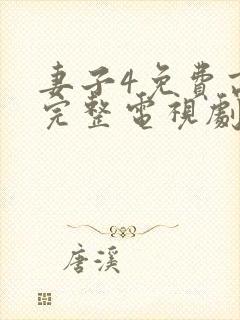 妻子4免費
完整電視劇
唐溪